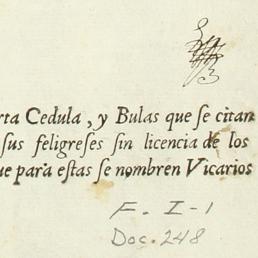 rta Cedula, y Bulas que se citan
sus feligreses sin licencia de los
ue para estas se nombren Vicarios
F. I-1
Doc. 248